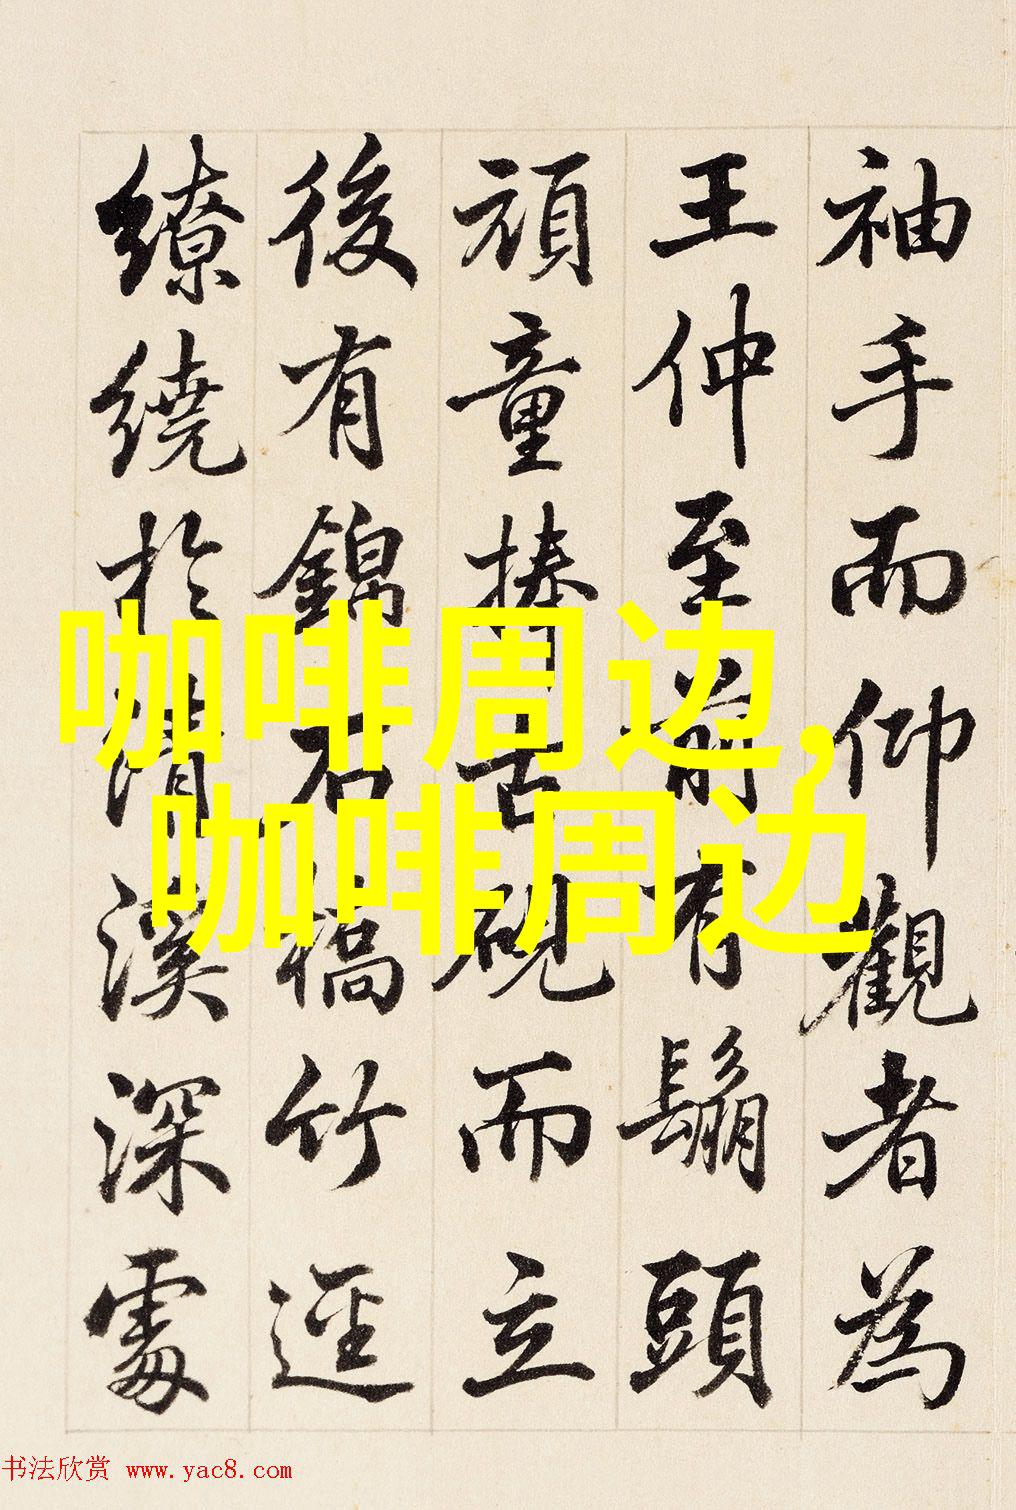 袖手而仰觀者為
王仲至前有鬅頭
頑童捧古硯而立
後有錦石橋竹逕
繚繞於清溪深處
咖啡周边,
咖啡周边
书法欣赏 www.yac8.com